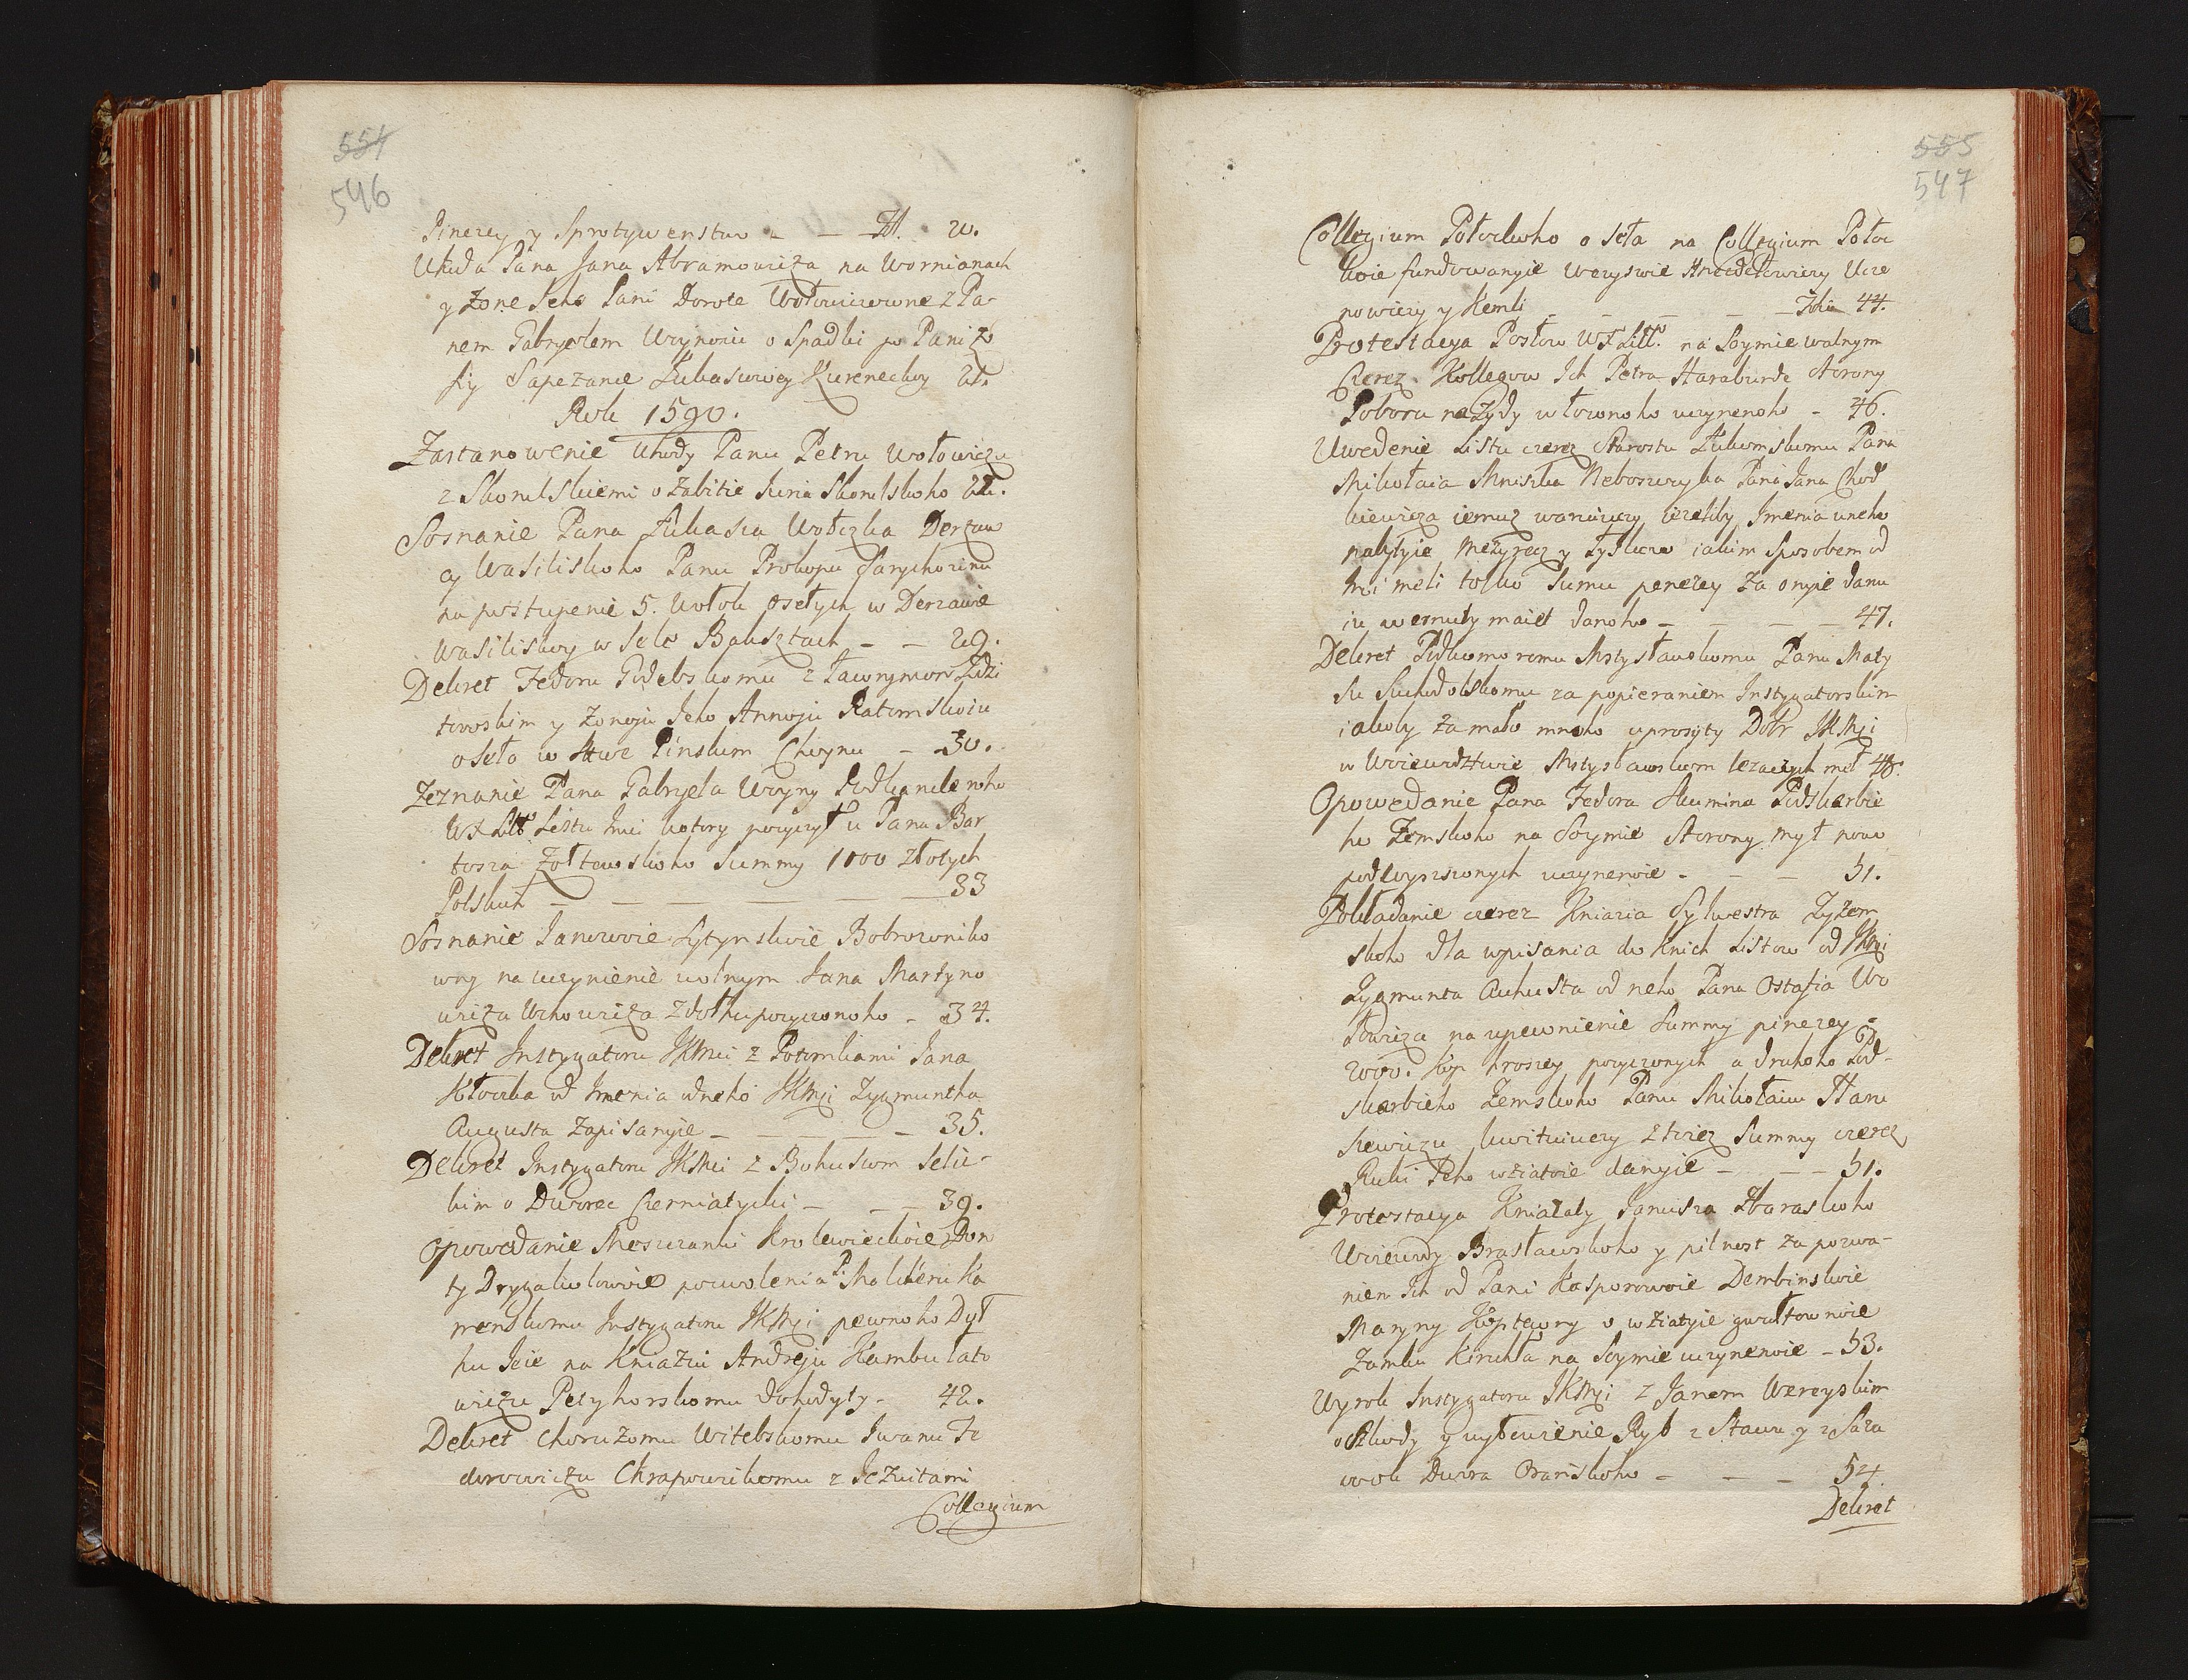 554
546
Pinezey y Sprotywenstwo - - Fol. 20.
Uhoda Pana Jana Abramowicza na Wornianach
y Zone Jeho Pani Dorote Wołowiczowne z Pa-
nem Gabryelem Woynoiu o Spadki po Pani Zo
fiy Sapezance Łukaszowey Kureneckoy
Roku 1590.
Zastanowenie Uhody Panu Petru Wołowiczu
z Skonilskiemi o Zabitie Juria
Soznanie Pana Łukasza Wołczka Derzaw
cy Wasiliskoho Panu Prokopu
na postupenie 5. Wołok osełych w Derzawie
Wasiliskoy w Sele Bakusztach - - 29.
Dekret Fedoru Godebskomu z Ławrynom
towskim y Zonoju Jeho Annoju Ratomskoiu
o Seła w Ptwe Pinskum Choynu - 30.
Zeznanie Pana Gabryela Woyny Podkanclenoho
WXLitt Listu Imci kotory pozyczył u Pana Bar
tosza Zołtowskoho Summy 1000 złotych
Polskich - - - - - 33
Soznanie Janowoie Bobrowniko
wny na uczynienie wolnym Jana Martyno
wicza z dołhu pozyczonoho - 34.
Dekret Instygatoru JKMci z Potomkami Jana
Kłoczka od Imenia od neho JKMci Zygmuntha
Augusta Zapisanyie - - - - 35.
Dekret Instygatoru JKMci z Bohuszom Selic-
kim o Dworec Czerniatycki - - - 39.
Opowedanie Meszczanki Krolewieckoie Don
ty Drygalwlowoie pozwolenia P.
menskomu Instygatoru JKMci pewnoho Dył
hu Jeie na Kniaziu Andreju Kambulato
wiczu Petyhorskomu dohodyty - 42.
Dekret Choruzomu Witebskomu Iwanu Fe
dorowiczu Chrapowickomu z Jezuitami
Collegium
555
547
Collegium Połockoho o Seła na Collegium Połoc
koie fundowanyie Weryswie Ucze
nowiczy y Kemli - - - - Folio 44.
Protestacya Posłow WXLitt. na Soymie walnym
Czerez Kollegow Ich Petra Haraburde Storony
Poboru na Zydy włownoho uczynenoho - 46.
Uwedenie Listu czerez Starostu Łukomskomu Pana
Mikołaia Mniszka Neboszczyka Pana Jana Chod
kiewicza iemuz iezeliby Imenia u neho
nabytyie Mezyrecz y Łyskow iakim Sposobem od
meli tolko Sumu penezey za onyie danu
iu wernuty maiet Janoho - - - - 47.
Dekret Podkomoromu Mstysławskomu Panu Maty
su Suchodolskomu za popieraniem Instygatorskim
iakoby za mało mnoho uprosyty Dobr JKMci
w Woiewodztwie Mstysławskom lezaczych meł 48.
Opowedanie Pana Fedora Skumina Podskarbie
ho Zemskoho na Soymie Storony myt nowo
podwyszszonych uczynenoie - - - 51.
Pokładanie czerez Kniazia Sylwestra Zyzem
skoho dla wpisania do Knich Listow od JKMci
Zygmunta Auhusta od neho Pana Ostafia Wo
łowicza na upewnienie Summy pinezey
2000. kop hroszey pozyczonych a druhoho Pod-
skarbieho Zemskoho Panu Mikołaiu Naru
szewiczu kwituiuczy z toiez Summy czerez
Ruki Jeho wziatoie danyie - - - 51.
Protestacya Kniazaty Janusza Zbaraskoho
Woiewody Brasławskoho y pilnost za pozwa-
niem Ich od Pani Kasporowoie Dembinskoie
Maryny o wziatyie gwałtownoie
Zamku na Soymie uczynenoie - 53.
Wyrok Instygatoru JKMci z Janem Wereyskim
o Szkody y wyłowienie Ryb z Stawu y z Saza
wok Dwora Oranskoho - - - 54
Dekret